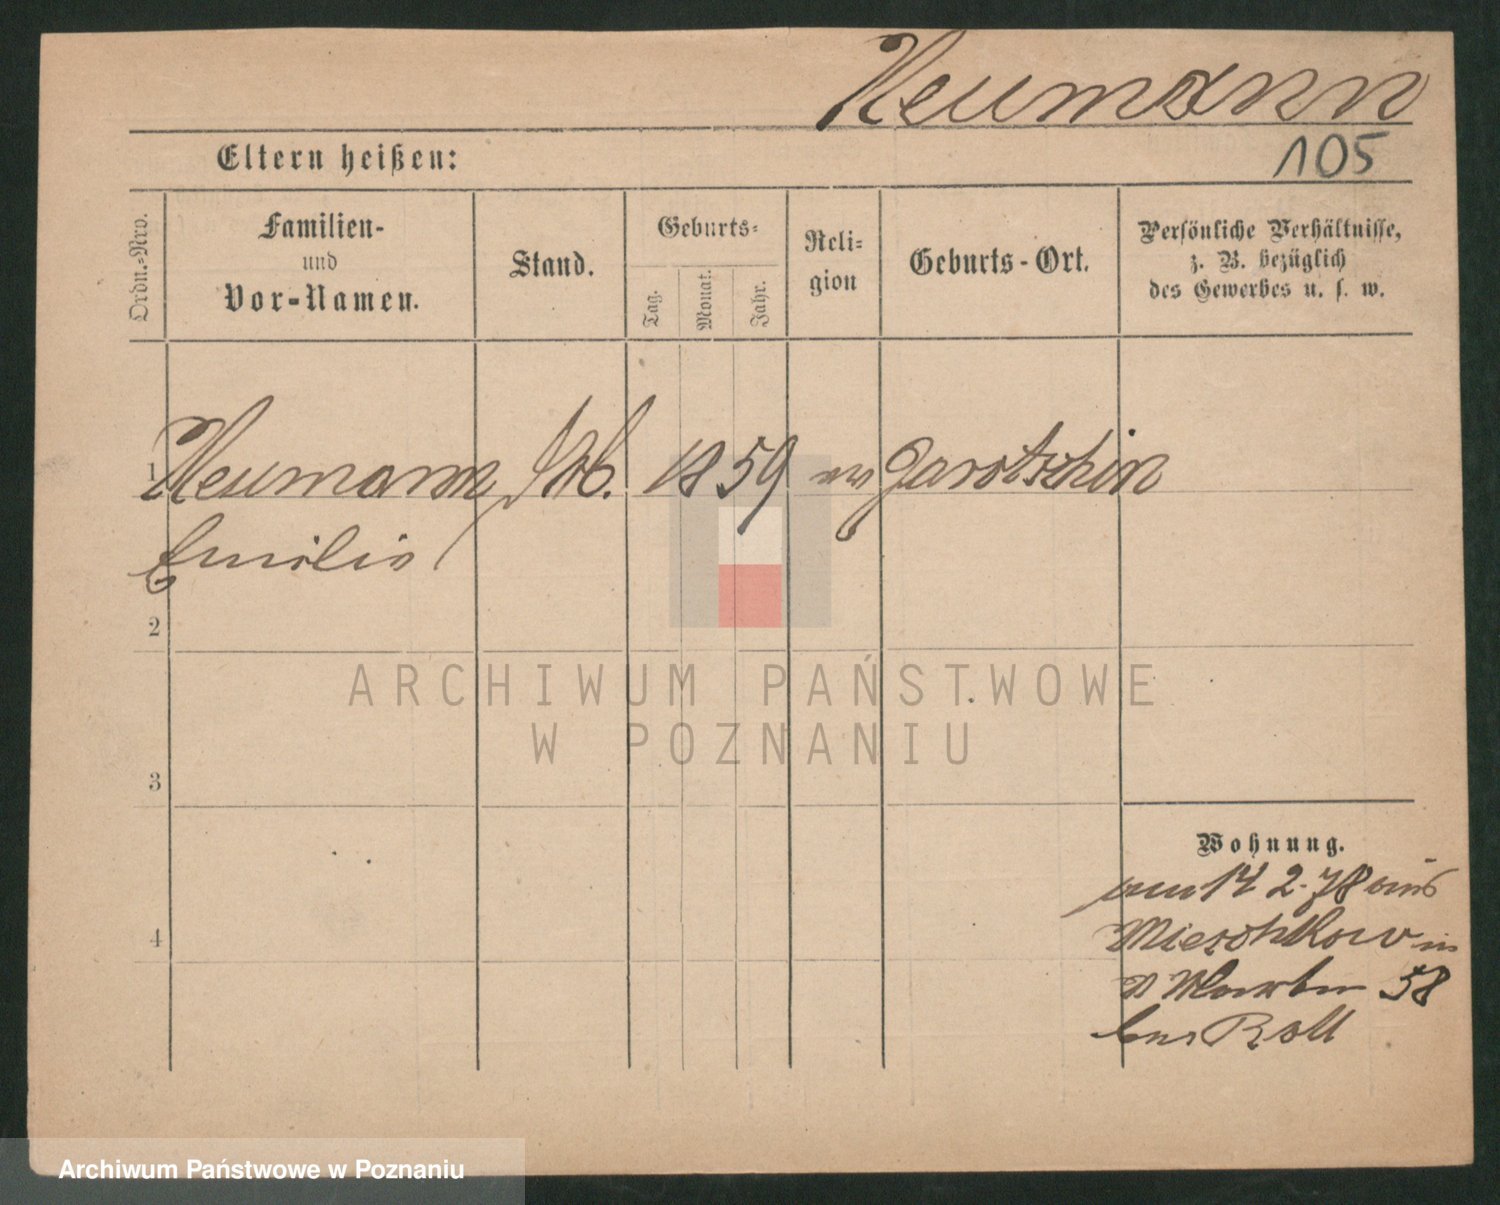 Neumann
Eltern heißen:
105
Ordn.-Nro.
Familien-
und
Vor-Namen.
Stand.
Geburts-
Tag.
Monat.
Jahr.
Reli-
gion
Geburts-Ort.
Persönliche Verhältnisse,
z. B. bezüglich
des Gewerbes u. s. w.
1 Neumann 1859 ev Jarotschin
Emilie
2
3
4
Wohnung.
am 14 2. 78 aus
Mieschkow in
58
bei Roll
ARCHIWUM PAŃSTWOWE
W POZNANIU
Archiwum Państwowe w Poznaniu